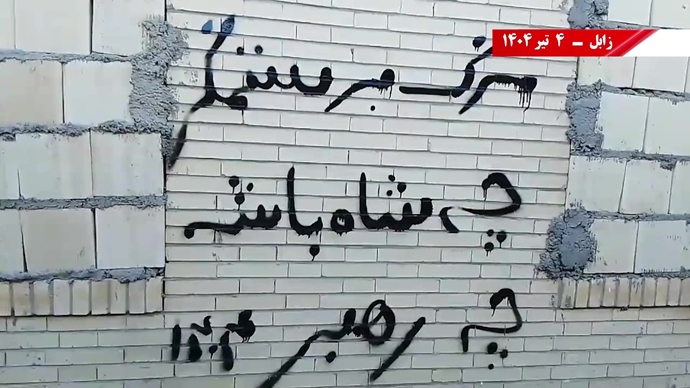 زابل - ۴ تیر ۱۴۰۴
مرگ بر ستمگر
چه شاه باشه
چه رهبر